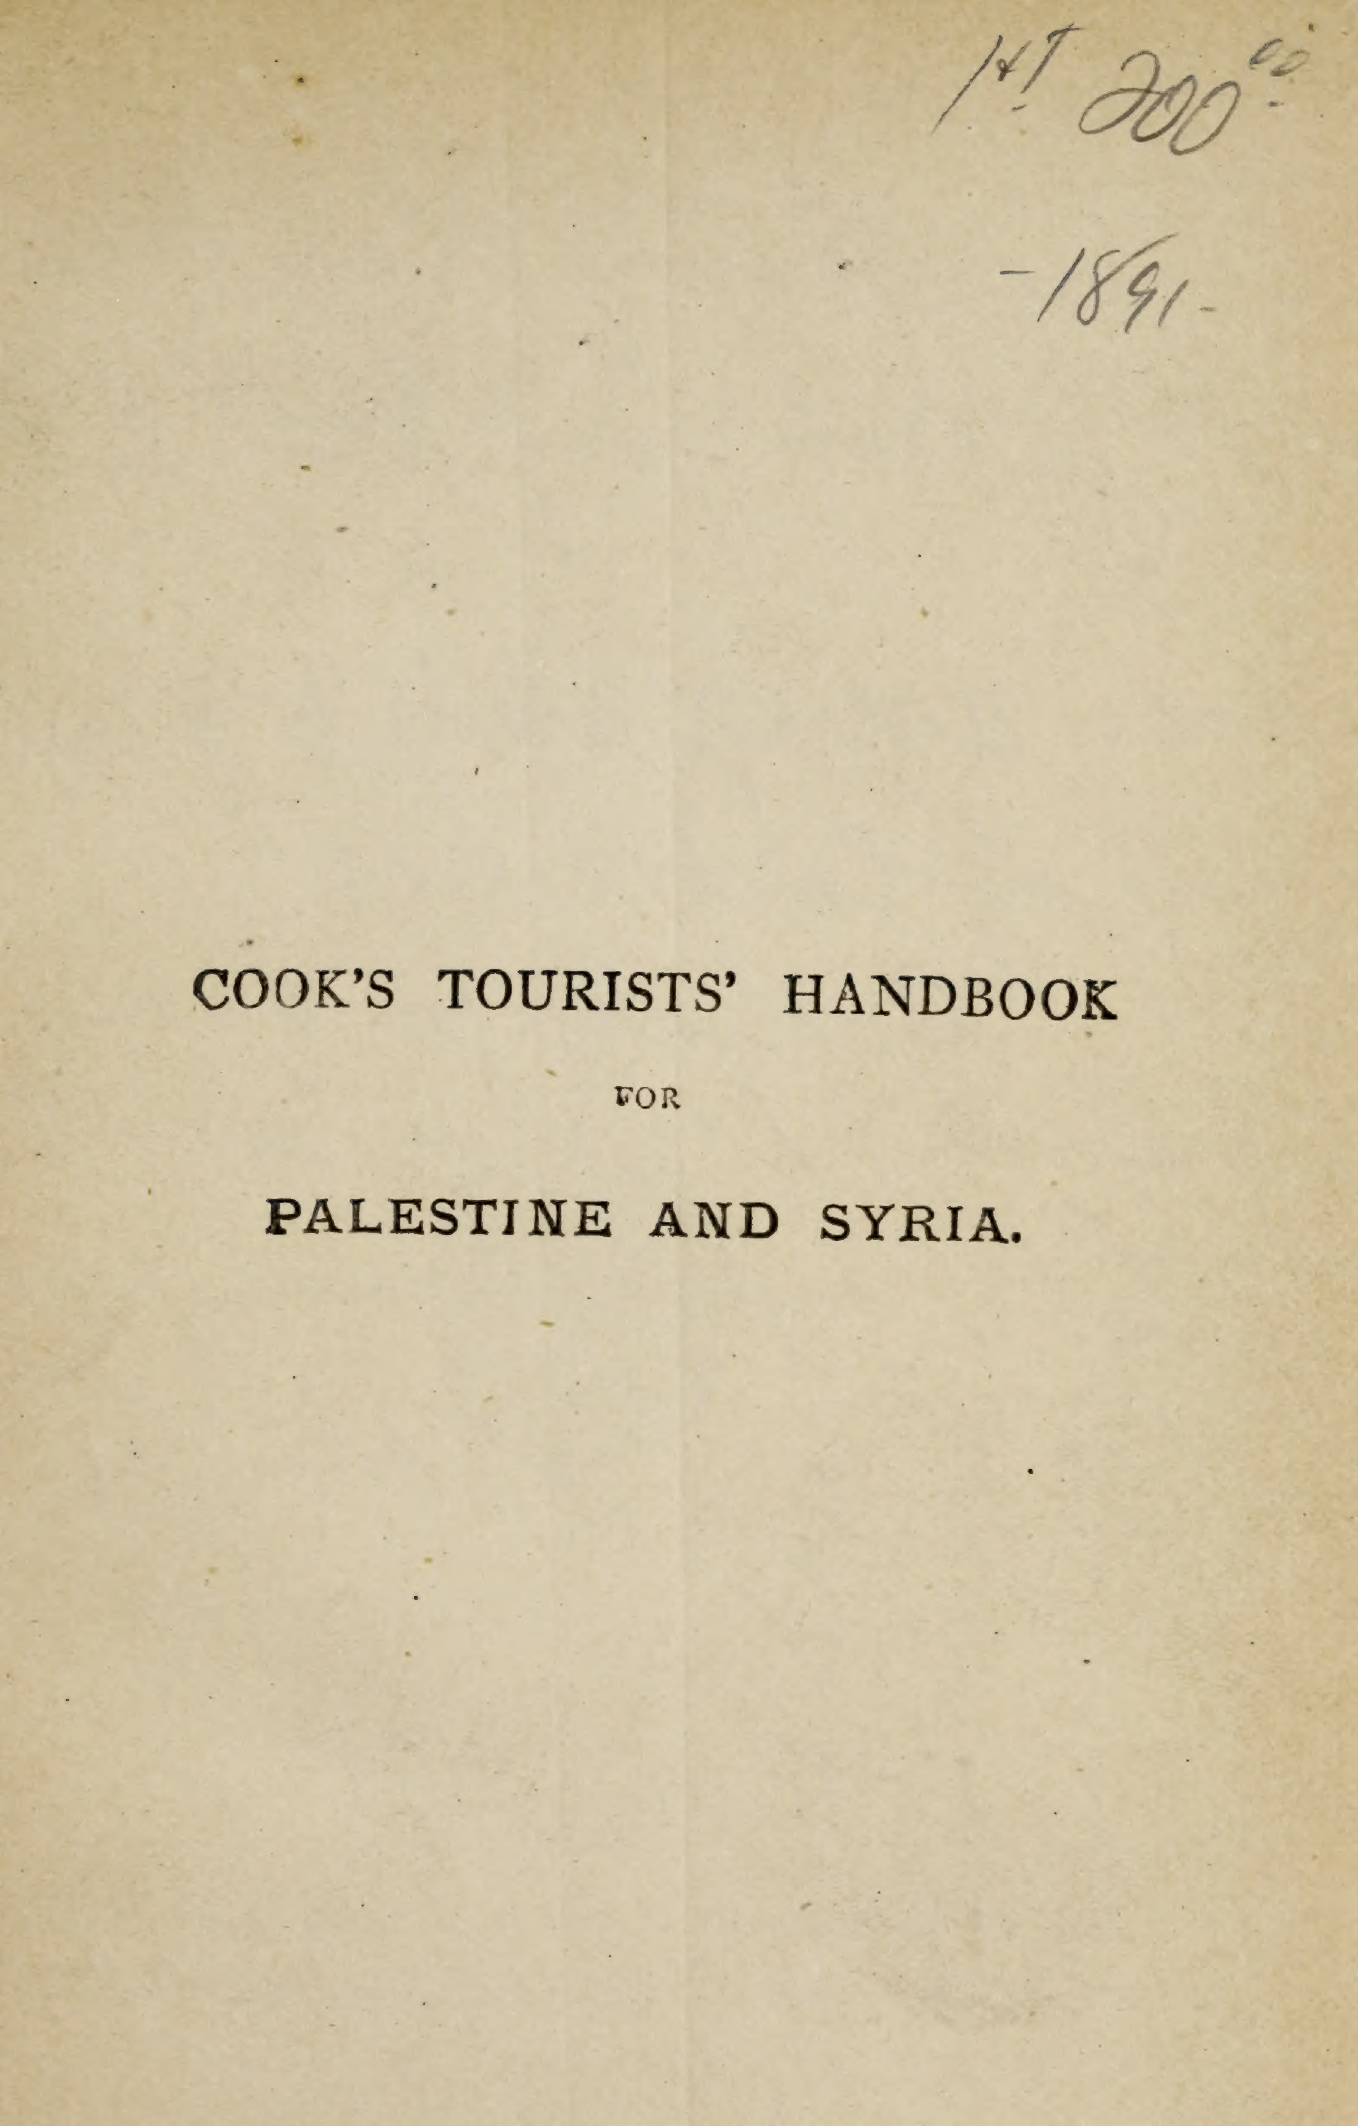 1st 200.00
-1891-
COOK'S TOURISTS' HANDBOOK
FOR
PALESTINE AND SYRIA.